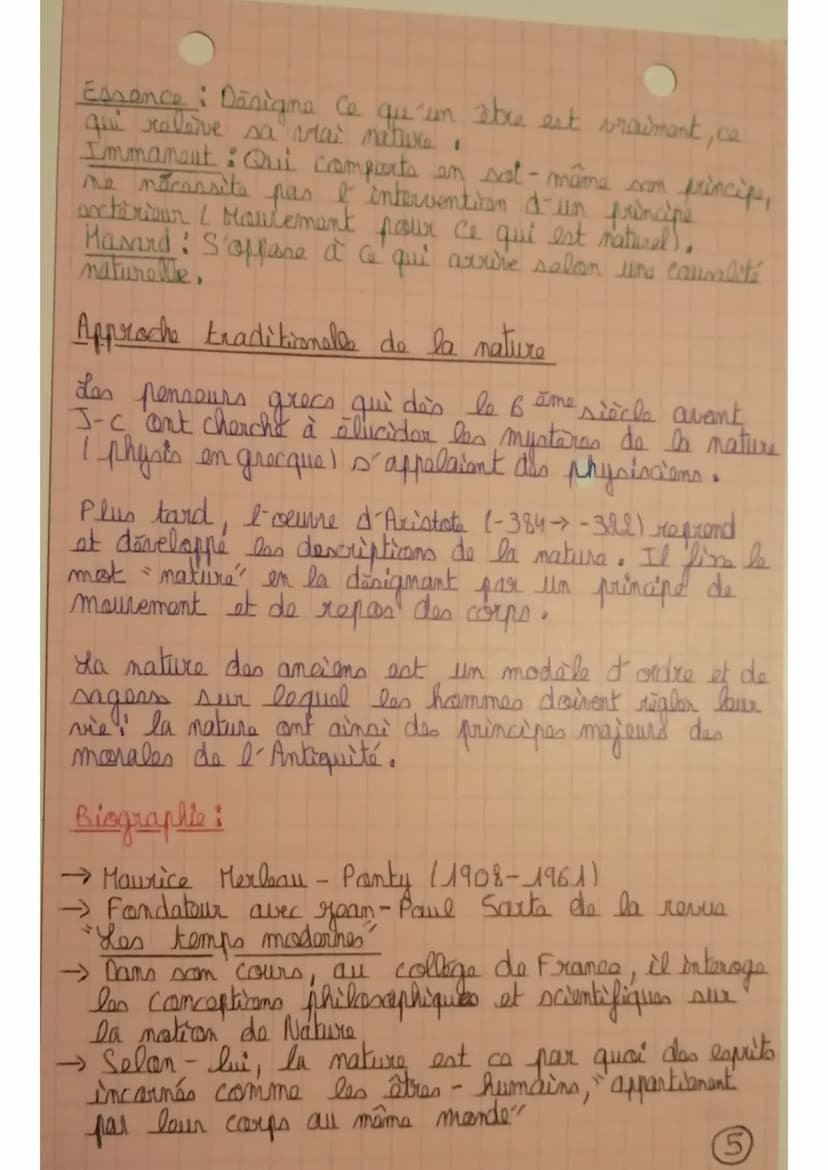 Essence : Désigne ce qu'un être est vraiment, ce
qui relève sa vrai nature.
Immanent : Qui comporte en soi-même son principe,
ne nécessite pas l'intervention d'un principe
extérieur (Mouvement pour ce qui est naturel).
Hasard : S'oppose à ce qui arrive selon une causalité
naturelle.
Approche traditionelle de la nature
Les penseurs grecs qui dès le 6 ème siècle avant
J-C ont cherché à élucider les mystères de la nature
(physis en grecque) s'appelaient des physisciens.
Plus tard, l'œuvre d'Aristote (-384→ -322) reprend
et développe les descriptions de la nature. Il fixe le
mot "nature" en la désignant par un principe de
mouvement et de repos des corps.
La nature des anciens est un modèle d'ordre et de
sagesse sur lequel les hommes doivent régler leur
vie : la nature ont ainsi des principes majeurs des
morales de l'Antiquité.
Biographie :
→ Maurice Merleau - Ponty (1908-1961)
→ Fondateur avec Jean-Paul Sarte de la revue
"Les temps modernes"
→ Dans son cours, au collège de France, il interoge
les conceptions philosophiques et scientifiques sur
la notion de Nature
→ Selon - lui, la nature est ce par quoi des esprits
incarnés comme les êtres - humains, "appartienent
par leur corps au même monde"
5